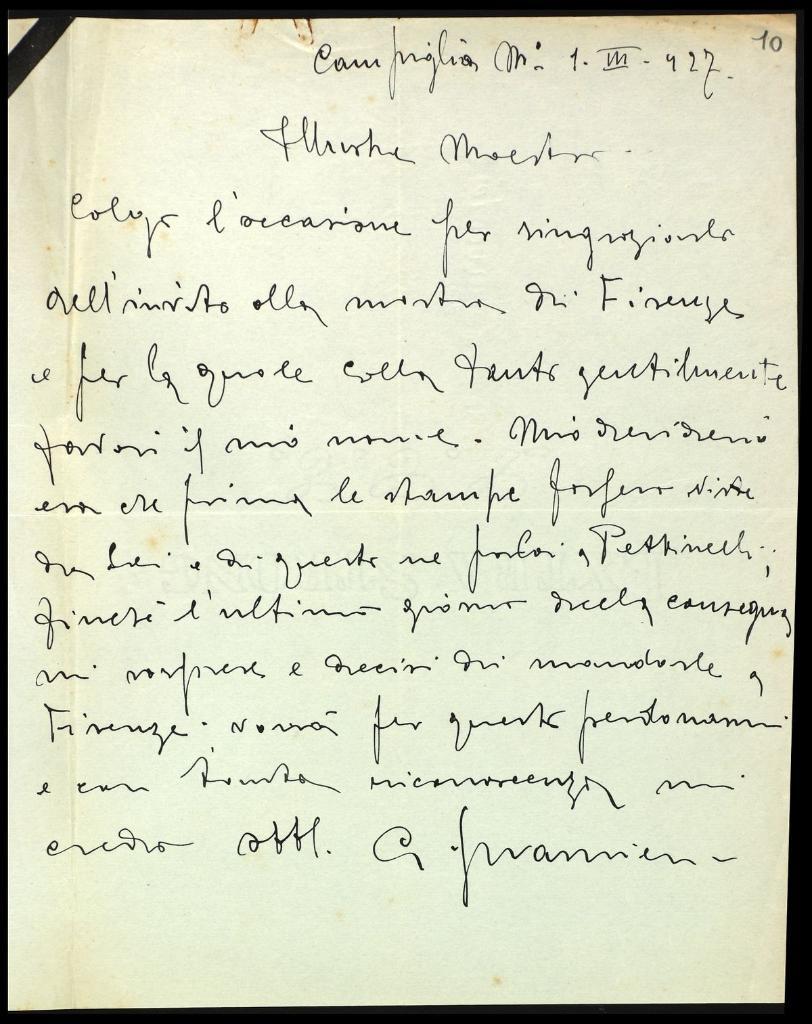 10
Campiglia M.ª 1. III. 927.
Illustre Maestro
Colgo l'occasione per ringraziarla
dell'invito alla mostra di Firenze
e per la quale colla tanto gentilmente
favorì il mio nome. Mio desiderio
era che prima le stampe fossero viste
da Lei e di questo ne parlai a Pettinelli;
finché l'ultimo giorno della consegna
mi sorprese e decisi di mandarle a
Firenze. Vorrà per questo perdonarmi
e con tanta riconoscenza mi
credo obbl.